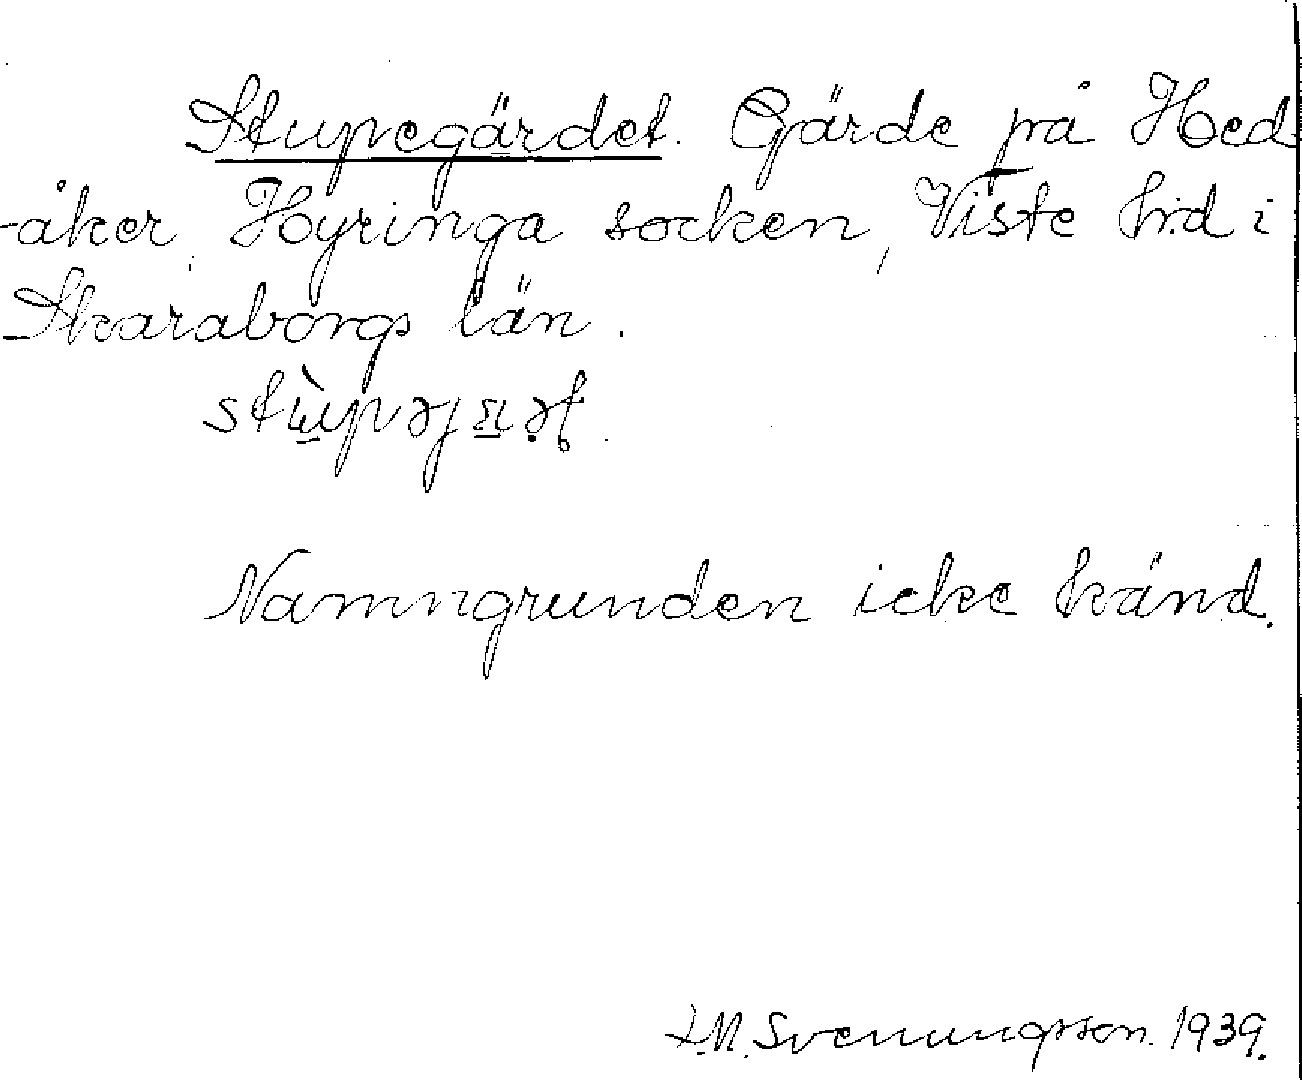 Stupegärdet. Gärde på Hed
-åker, Hyringa socken, Viste h:d i
Skaraborgs län.
Namngrunden icke känd.
Svenungsson. 1939.